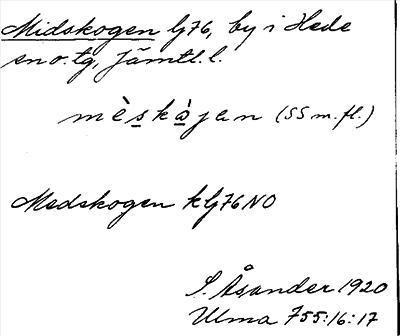 Midskogen lj76, by i Hede
sn o. tg, Jämtl. l.
mèskòjan (SS m. fl.)
Medskogen k lj76 NO
S. Åsander 1920
Ulma 755:16:17